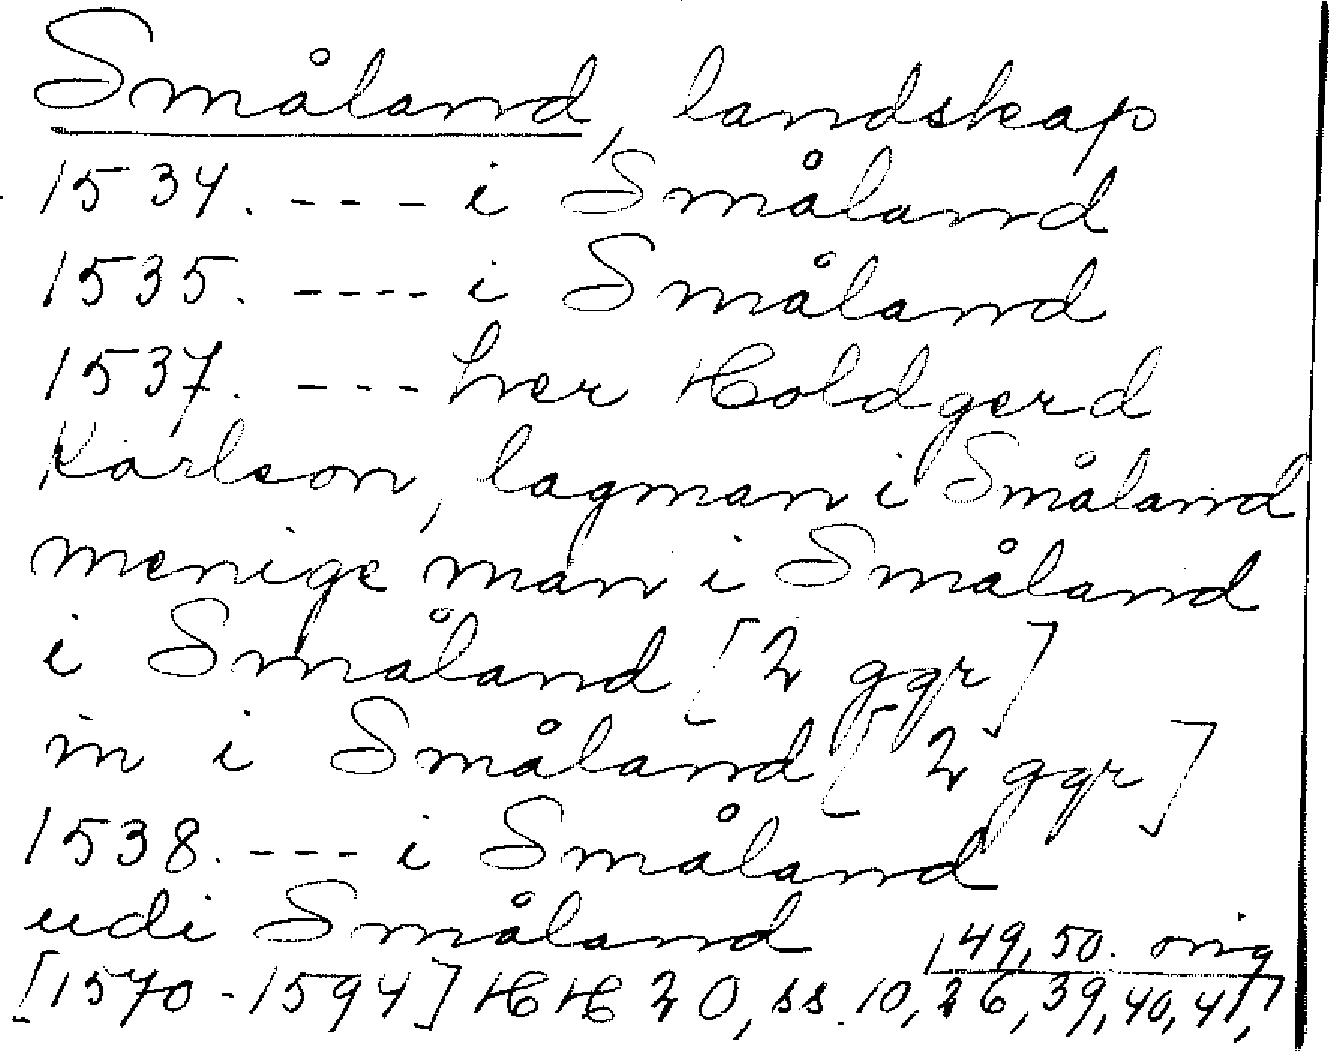 Småland, landskap
1534. --- i Småland
1535. ---- i Småland
1537. --- her Holdgerd
Karlson, lagman i Småland
menige man i Småland
i Småland [2 ggr]
in i Småland [2 ggr]
1538. --- i Småland
udi Småland
149, 50. orig
[1570-1594] HH 20, ss. 10, 26, 39, 40, 41,